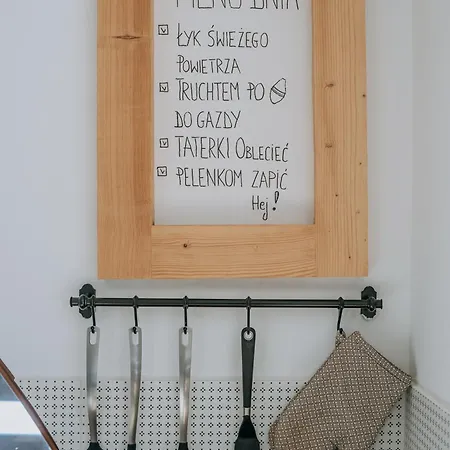 MENU DNIA
ŁYK ŚWIEŻEGO
POWIETRZA
TRUCHTEM PO
DO GAZDY
TATERKI OBLECIEĆ
PELENKOM ZAPIĆ
Hej!